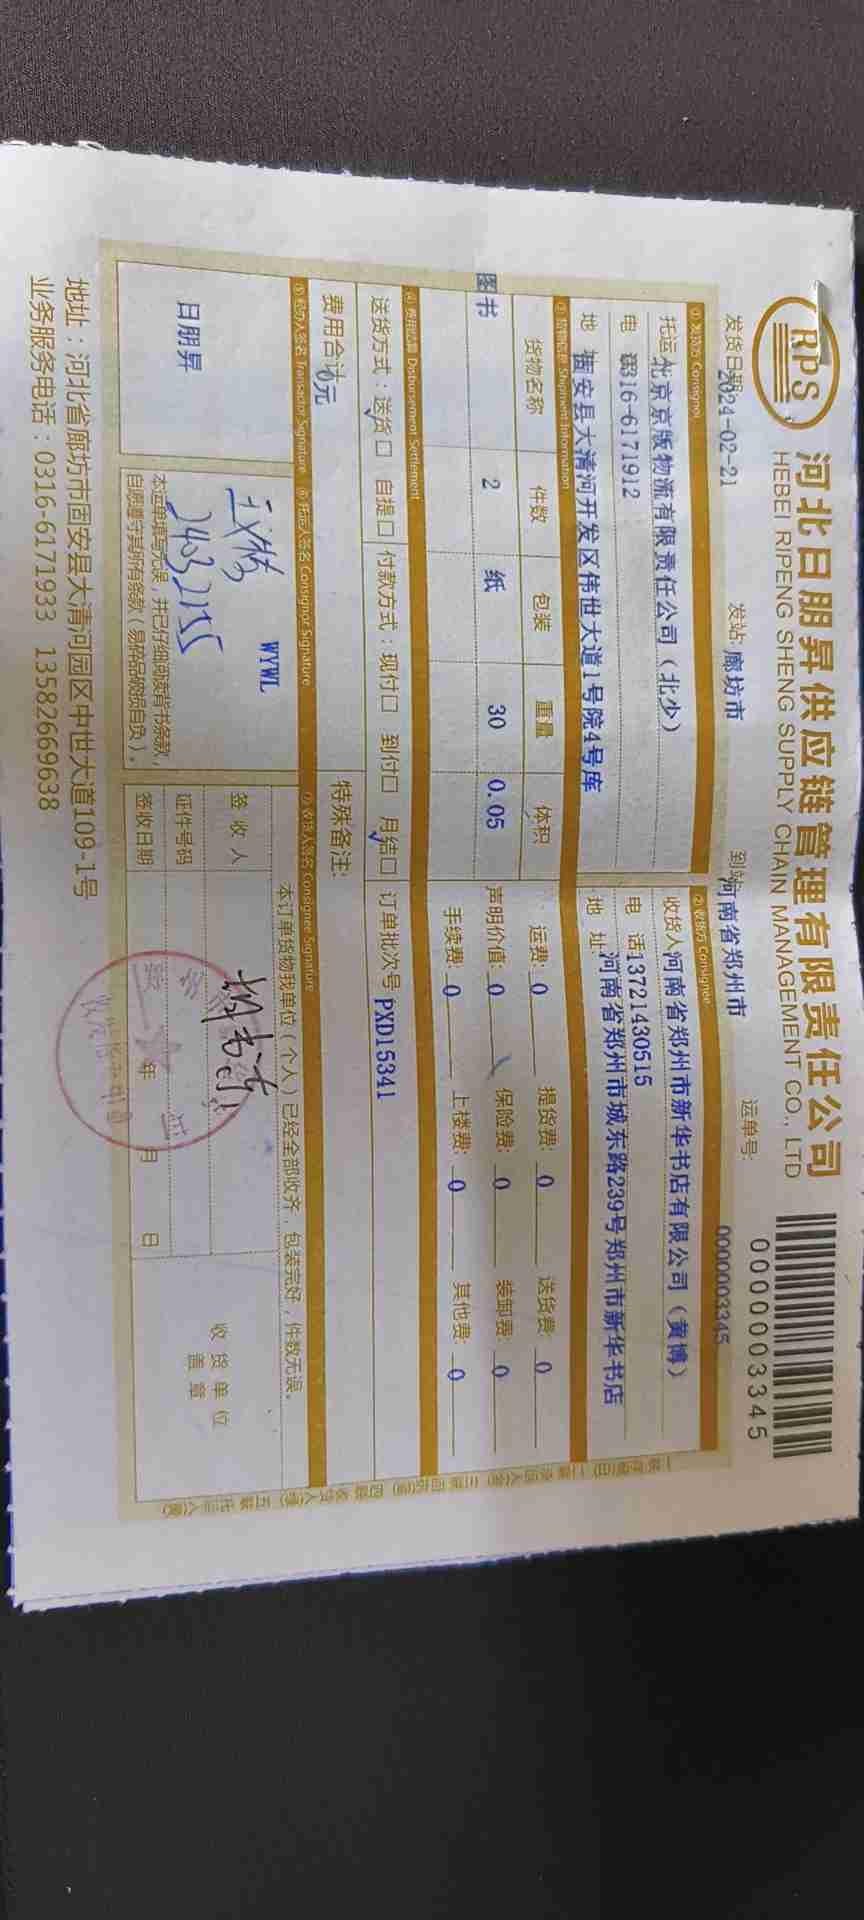 RPS
河北日朋昇供应链管理有限责任公司
HEBEI RIPENG SHENG SUPPLY CHAIN MANAGEMENT CO., LTD
0000003345
发货日期 2024-02-21 发站: 廊坊市 到站 河南省郑州市 运单号: 0000003345
①发货方 Consignor
托运 北京京版物流有限责任公司（北少）
电 0316-6171912
地 固安县大清河开发区伟世大道1号院4号库
②收货方 Consignee
收货人 河南省郑州市新华书店有限公司（黄博）
电 话 13721430515
地 址 河南省郑州市城东路239号郑州市新华书店
③货物信息 Shipment Information
货物名称 件数 包装 重量 体积
图书 2 纸 30 0.05
运费: 0 提货费: 0 送货费: 0
声明价值: 0 保险费: 0 装卸费: 0
手续费: 0 上楼费: 0 其他费: 0
④费用结算 Disbursement Settlement
送货方式：送货□ 自提□ 付款方式：现付□ 到付□ 月结□ 订单批次号 PXD15341
费用合计 0元
特殊备注:
⑤经办人签名 Transactor Signature ⑥托运人签名 Consignor Signature ⑦收货人签名 Consignee Signature
日朋昇
WYWL
本运单填写无误，并已仔细阅读背书条款，
自愿遵守其所有条款（易碎品破损自负）。
本订单货物我单位（个人）已经全部收齐，包装完好，件数无误。
签 收 人
证件号码
签收日期 年 月 日
收货单位
盖章
地址：河北省廊坊市固安县大清河园区中世大道109-1号
业务服务电话：0316-6171933 13582669638